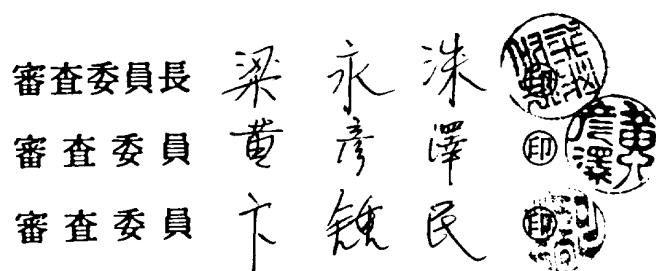 審査委員長 梁 永 洙
審査委員 黄 彦 澤 印
審査委員 卞 鍾 民 印